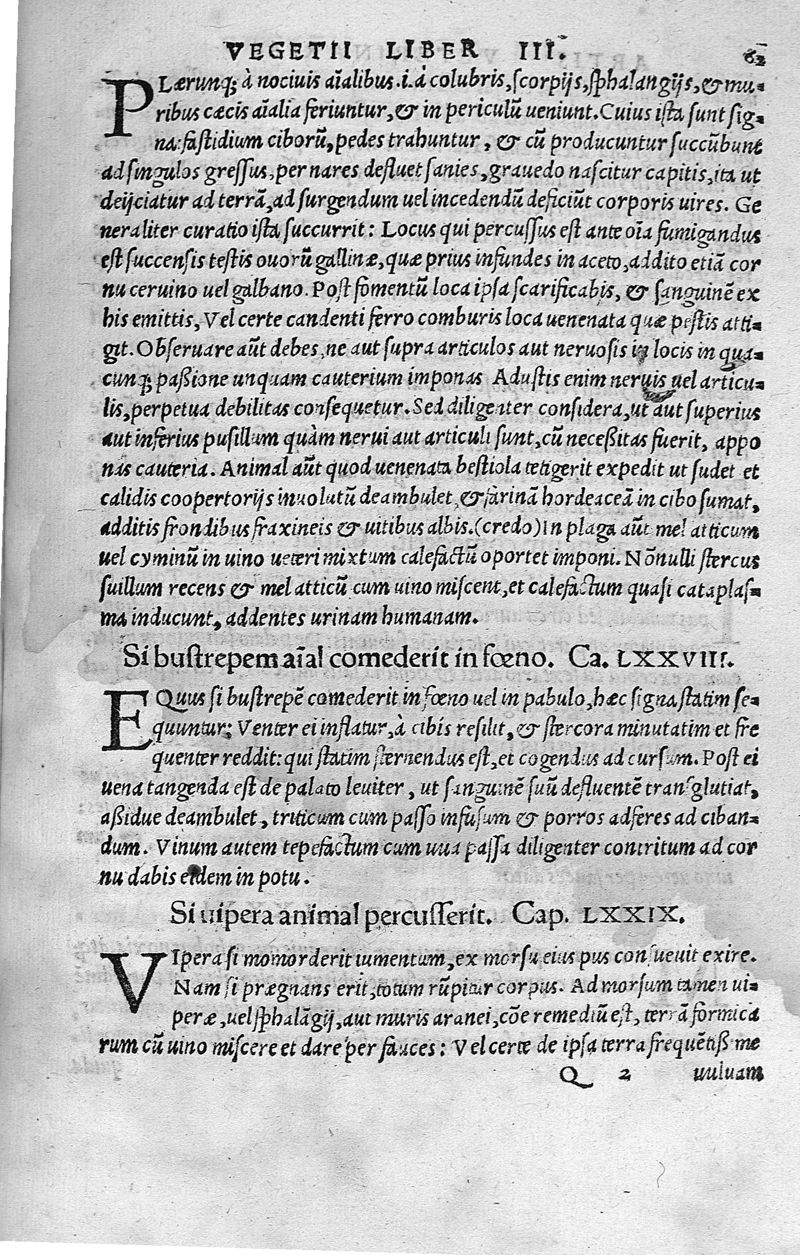 VEGETII LIBER III. 62
PLærunq; à nociuis aĩalibus.i.à colubris, scorpijs, sphalangijs, & mu-
ribus cæcis aĩalia feriuntur, & in periculũ ueniunt. Cuius ista sunt sig-
na: fastidium ciborũ, pedes trahuntur, & cũ producuntur succũbunt
ad singulos gressus, per nares defluet sanies, grauedo nascitur capitis, ita ut
deijciatur ad terrã, ad surgendum uel incedendũ deficiũt corporis uires. Ge
neraliter curatio ista succurrit: Locus qui percussus est ante oĩa fumigandus
est succensis testis ouorũ gallinæ, quæ prius infundes in aceto, addito etiã cor
nu ceruino uel galbano. Post fomentũ loca ipsa scarificabis, & sanguinẽ ex
his emittis, Vel certe candenti ferro comburis loca uenenata quæ pestis atti-
git. Obseruare aũt debes, ne aut supra articulos aut neruosis in locis in qua-
cunq; paßione unquam cauterium imponas Adustis enim neruis uel articu-
lis, perpetua debilitas consequetur. Sed diligenter considera, ut aut superius
aut inferius pusillum quàm nerui aut articuli sunt, cũ neceßitas fuerit, appo
nas cauteria. Animal aũt quod uenenata bestiola tetigerit expedit ut sudet et
calidis coopertorijs inuolutũ deambulet, & farinã hordeaceã in cibo sumat,
additis frondibus fraxineis & uitibus albis.(credo)in plaga aũt mel atticum
uel cyminũ in uino ueteri mixtum calefactũ oportet imponi. Nõnulli stercus
suillum recens & mel atticũ cum uino miscent, et calefactum quasi cataplas-
ma inducunt, addentes urinam humanam.
Si bustrepem aĩal comederit in fœno. Ca. LXXVIII.
EQuus si bustrepẽ comederit in fœno uel in pabulo, hæc signa statim se-
quuntur: Venter ei inflatur, à cibis resilit, & stercora minutatim et fre
quenter reddit: qui statim sternendus est, et cogendus ad cursum. Post ei
uena tangenda est de palato leuiter, ut sanguinẽ suũ defluentẽ transglutiat,
aßidue deambulet, triticum cum passo infusum & porros adferes ad ciban-
dum. Vinum autem tepefactum cum uua passa diligenter contritum ad cor
nu dabis eidem in potu.
Si uipera animal percusserit. Cap. LXXIX.
VIpera si momorderit iumentum, ex morsu eius pus consueuit exire.
Nam si prægnans erit, totum rũpitur corpus. Ad morsum tamen ui-
peræ, uel sphalãgij, aut muris aranei, cõe remediũ est, terrã formica
rum cũ uino miscere et dare per fauces: Vel certe de ipsa terra frequẽtiß me
Q 2 uuluam